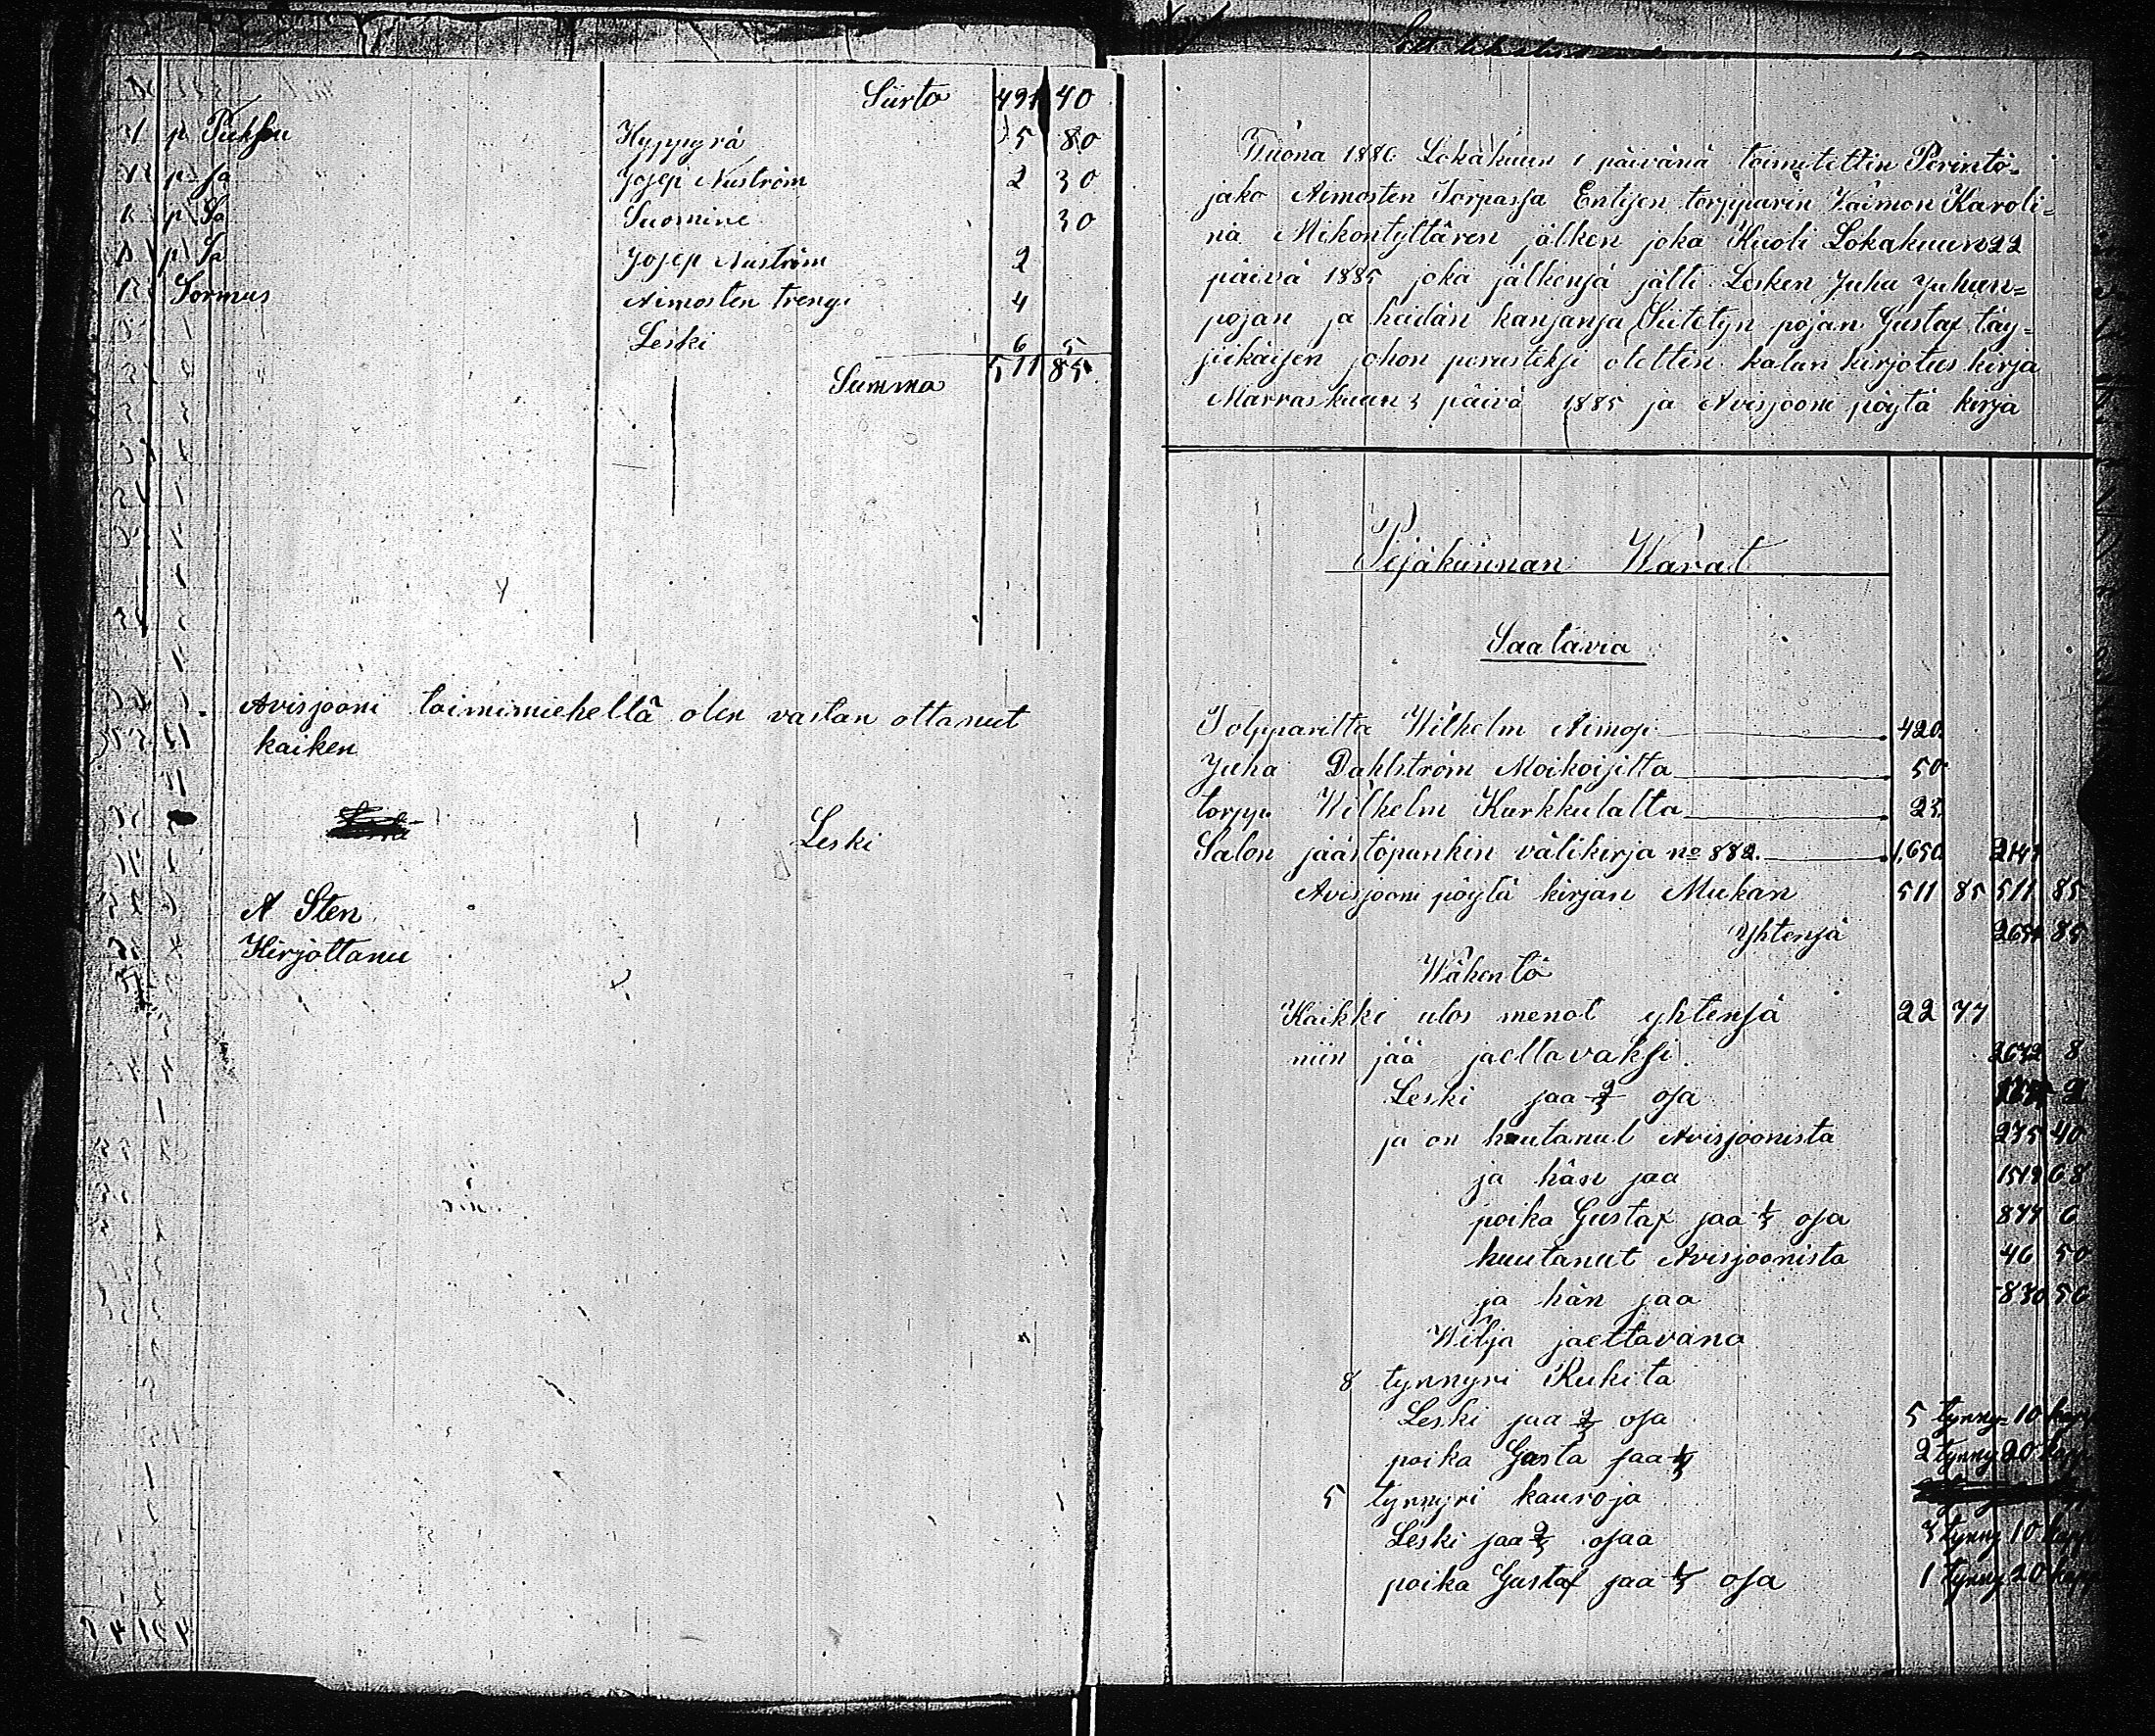 Siirto 491 40
1 p Puksu Hyppyrä 5 80
p Sa Josep Nuström 2 30
p Sa Suomine 30
p Sa Josep Nuström 2
Sormus Aimosten trengi 4
Leski 6 5
Summa 511 85
Avisjooni toimimieheltä olen vastan ottanut
kaiken
Leski
A Sten
Kirjottanu
Wuona 1886 Lokakuun 1 päivänä toimitettin Perintö-
jako Aimosten Torpassa Entisen torpparin Waimon Karoli=
na Mikontyttären jälken joka Kuoli Lokakuun 22
päivä 1885 joka jälkensä jätti Lesken Juha Juhan=
pojan ja heidän kansansa Siitetyn pojan Gustaf täy-
sikäisen johon perusteksi otettin kalun kirjotus kirja
Marraskuun 3 päivä 1885 ja Avisjooni pöytä kirja
Pesäkunnan Warat
Saatavia
Tolpparilta Wilhelm Aimosi 420
Juha Dahlström Moikoisilta 50
torpp. Wilhelm Kurkkulalta 23
Salon säästöpankin välikirja no 882. 1,650 2143
Avisjooni pöytä kirjan Mukan 511 85 511 85
Yhtensä 2654 85
Wähentö
Kaikki ulos menot yhtensä 22 77
niin jää jaettavaksi 2632 8
Leski saa 2/3 osa
ja on huutanut Avisjoonista 235 40
ja hän saa 1519 68
poika Gustaf saa 1/3 osa 877 6
huutanut Avisjoonista 46 50
ja hän saa 830 56
Wilja jaettavana
8 tynnyri Rukita
Leski saa 2/3 osa 5 tynny= 10 kapp
poika Gusta saa 1/3 2 tynny 20 kapp
5 tynnyri kauroja
Leski saa 2/3 osaa 3 tynny 10 kapp
poika Gustaf saa 1/3 osa 1 tynny 20 kapp